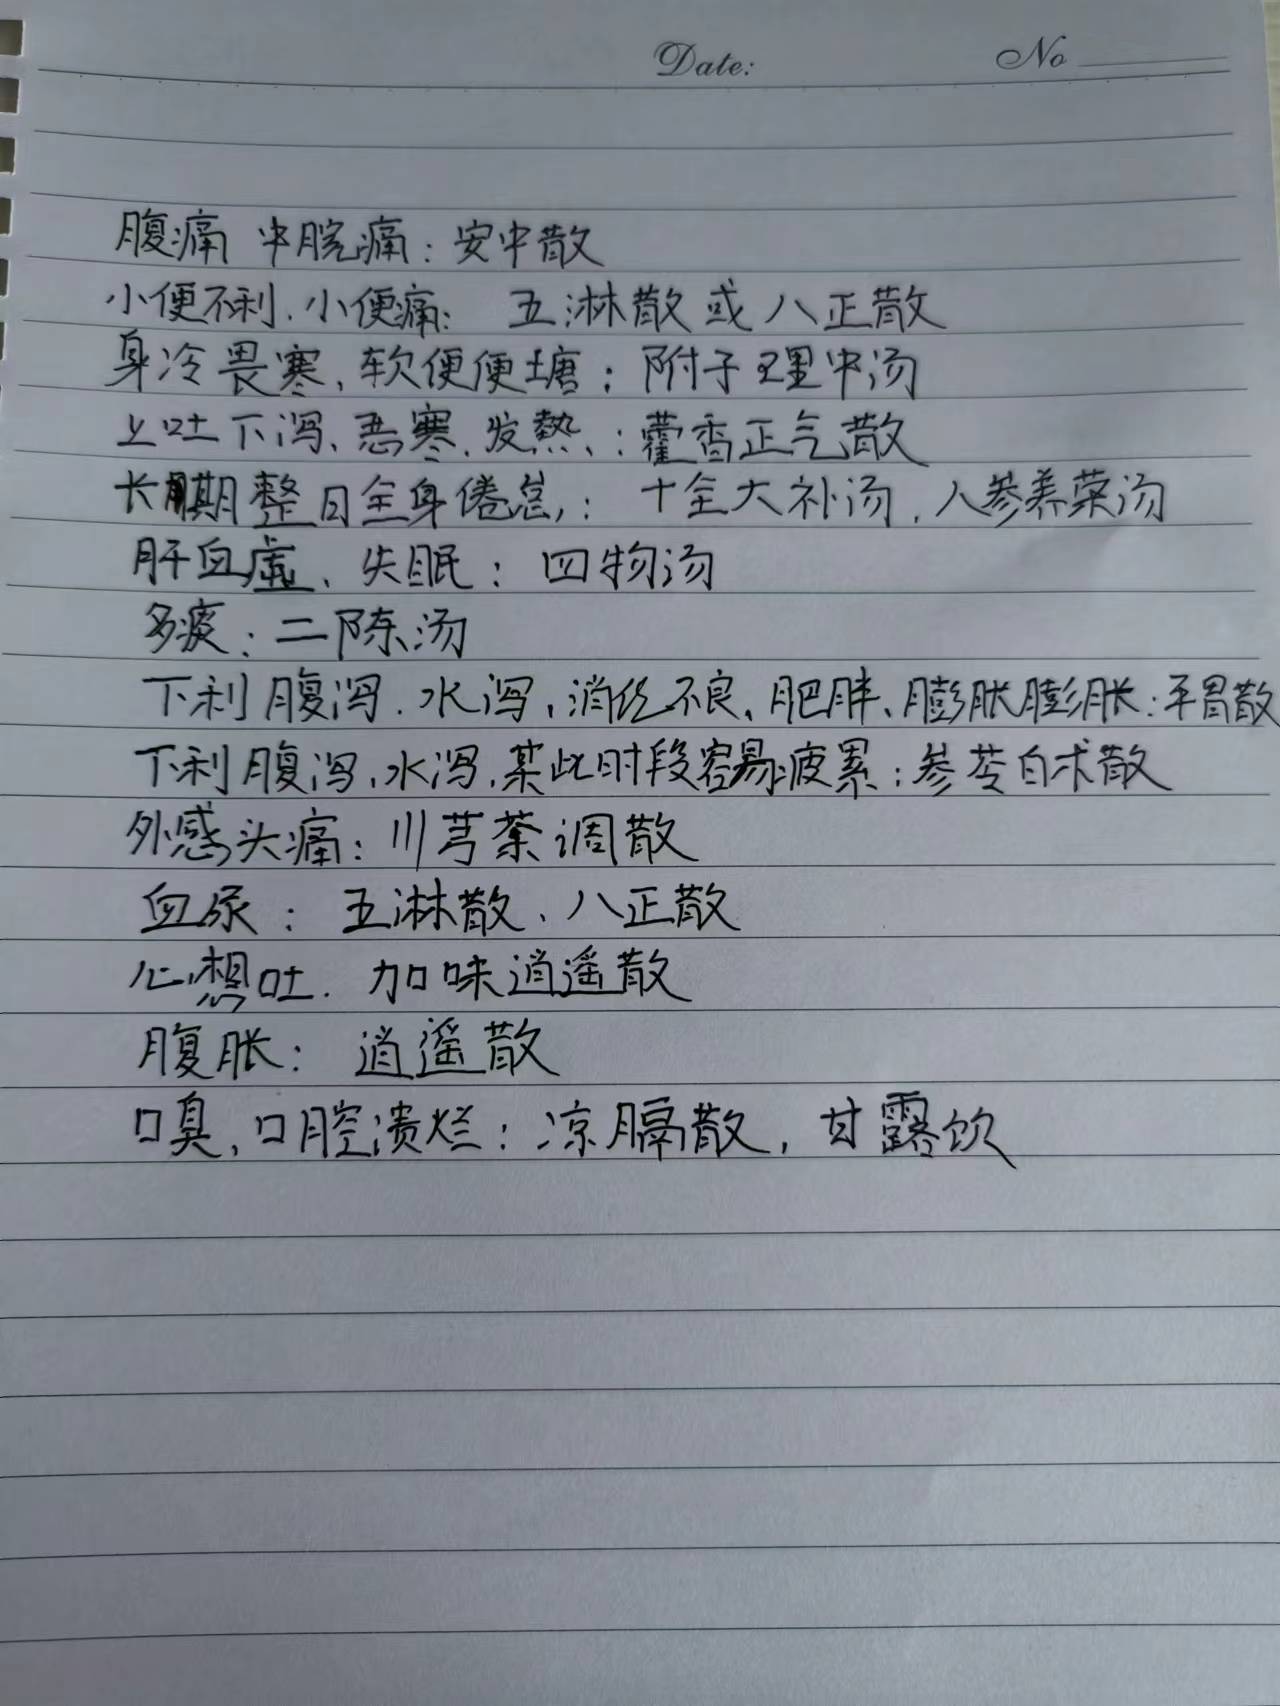 Date: No
腹痛 中脘痛：安中散
小便不利、小便痛： 五淋散或八正散
身冷畏寒、软便便塘：附子理中汤
上吐下泻、恶寒、发熱、：藿香正气散
长期整日全身倦怠，： 十全大补汤、人参养荣汤
肝血虚、失眠：四物汤
多痰：二陈汤
下利腹泻、水泻，消化不良、肥胖、膨胀膨胀：平胃散
下利腹泻，水泻，某些时段容易疲累：参苓白术散
外感头痛：川芎茶调散
血尿：五淋散、八正散
心想吐．加味逍遥散
腹胀：逍遥散
口臭，口腔溃烂：凉膈散，甘露饮